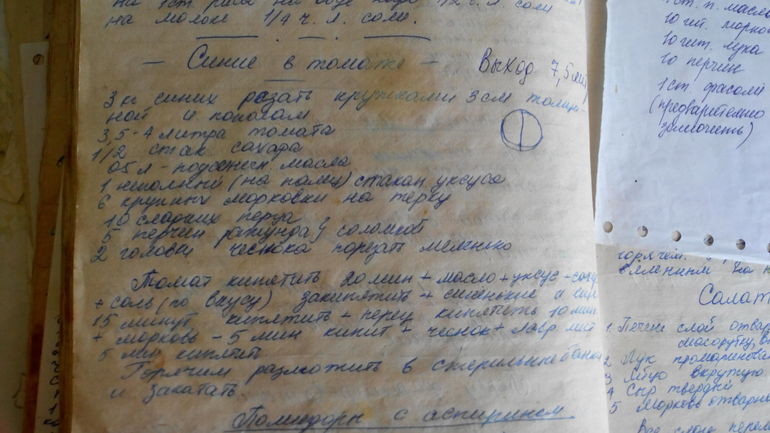 на 1 ст. риса на воде надо 1/2 ч. л соли
на молоке 1/4 ч. л. соли.
— Синие в томате —
Выход 7,5 литр
3 кг синих резать кружками 3 см толщи-
ной и пополам
3,5-4 литра томата
1/2 стак сахара
05 л - подсолнечн масла
1 неполный (на палец) стакан уксуса
6 крупных морковки на терку
10 сладких перца
5 перчин ратунда } соломкой
2 головки чеснока порезать меленько
Томат кипятить 20 мин + масло + уксус + сахар
+ соль (по вкусу) закипятить + синенькие и еще
15 минут кипятить + перец кипятить 10 мин
+ морковь - 5 мин кипит + чеснок + лавр лист
5 мин кипятит
Горячим разложить в стерильные банки
и закатать.
Помидоры с аспирином
1 ст. п. масла
10 шт. морков
10 шт. лука
10 перчин
1 ст. фасоли
(предварительно
замочить)
горячем.
Салат
1 Печень слой отвар
2 Лук
3 Яйцо вкрутую
4 Сыр твердый
5 Морковь отварн
Все слои перем